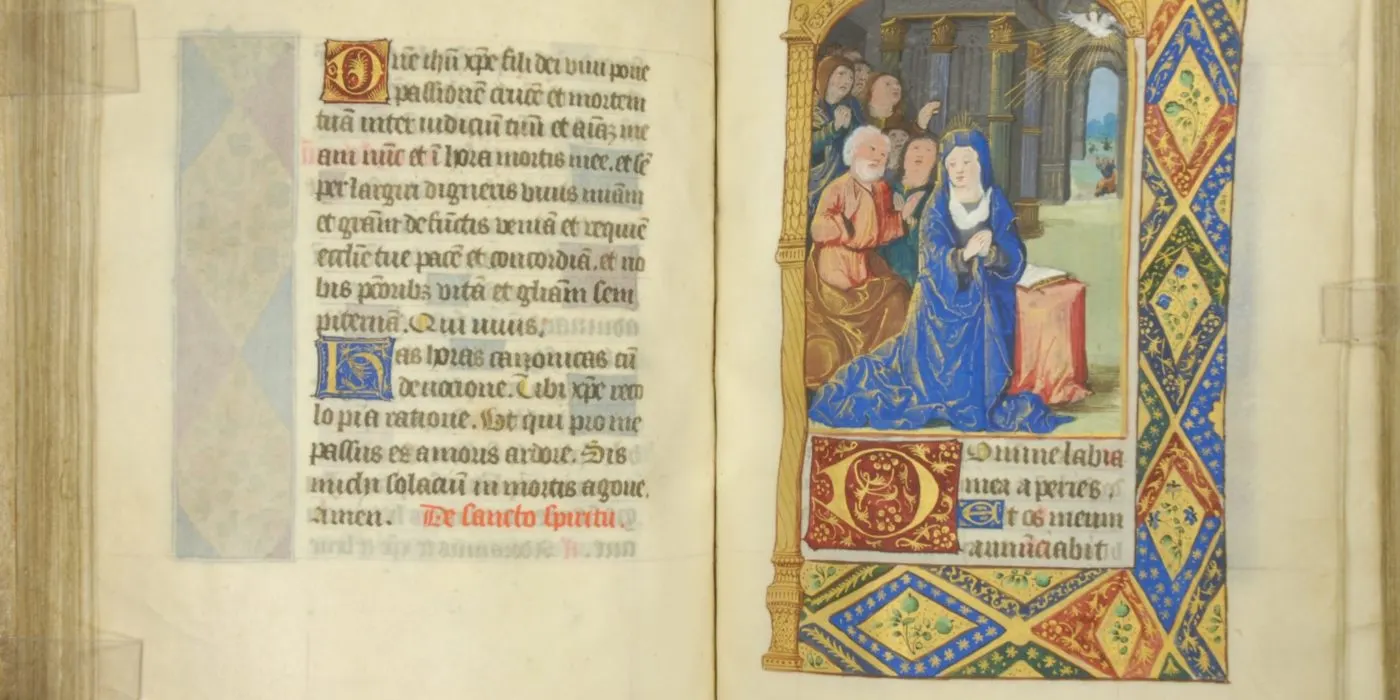 Dñe ihũ xp̃e fili dei viui pone
passionẽ crucẽ et mortem
tuã inter iudiciũ tuũ et aĩaʒ me
am nũc et ĩ hora mortis mee. et
per largiri digneris viuis m̃iam
et gr̃am defũctis veniã et requiẽ
eccl̃ie tue pacẽ et concordiã. et no
bis pc̃oribʒ vitã et gl̃iam sem
piternã. Qui viuis.
Has horas canonicas cũ
deuocione. Tibi xp̃e reco
lo pia ratione. Vt qui pro me
passus es amoris ardore. Sis
michi solaciũ in mortis agone.
Amen. De sancto spiritu.
Domine labia
mea aperies.
Et os meum
annũciabit